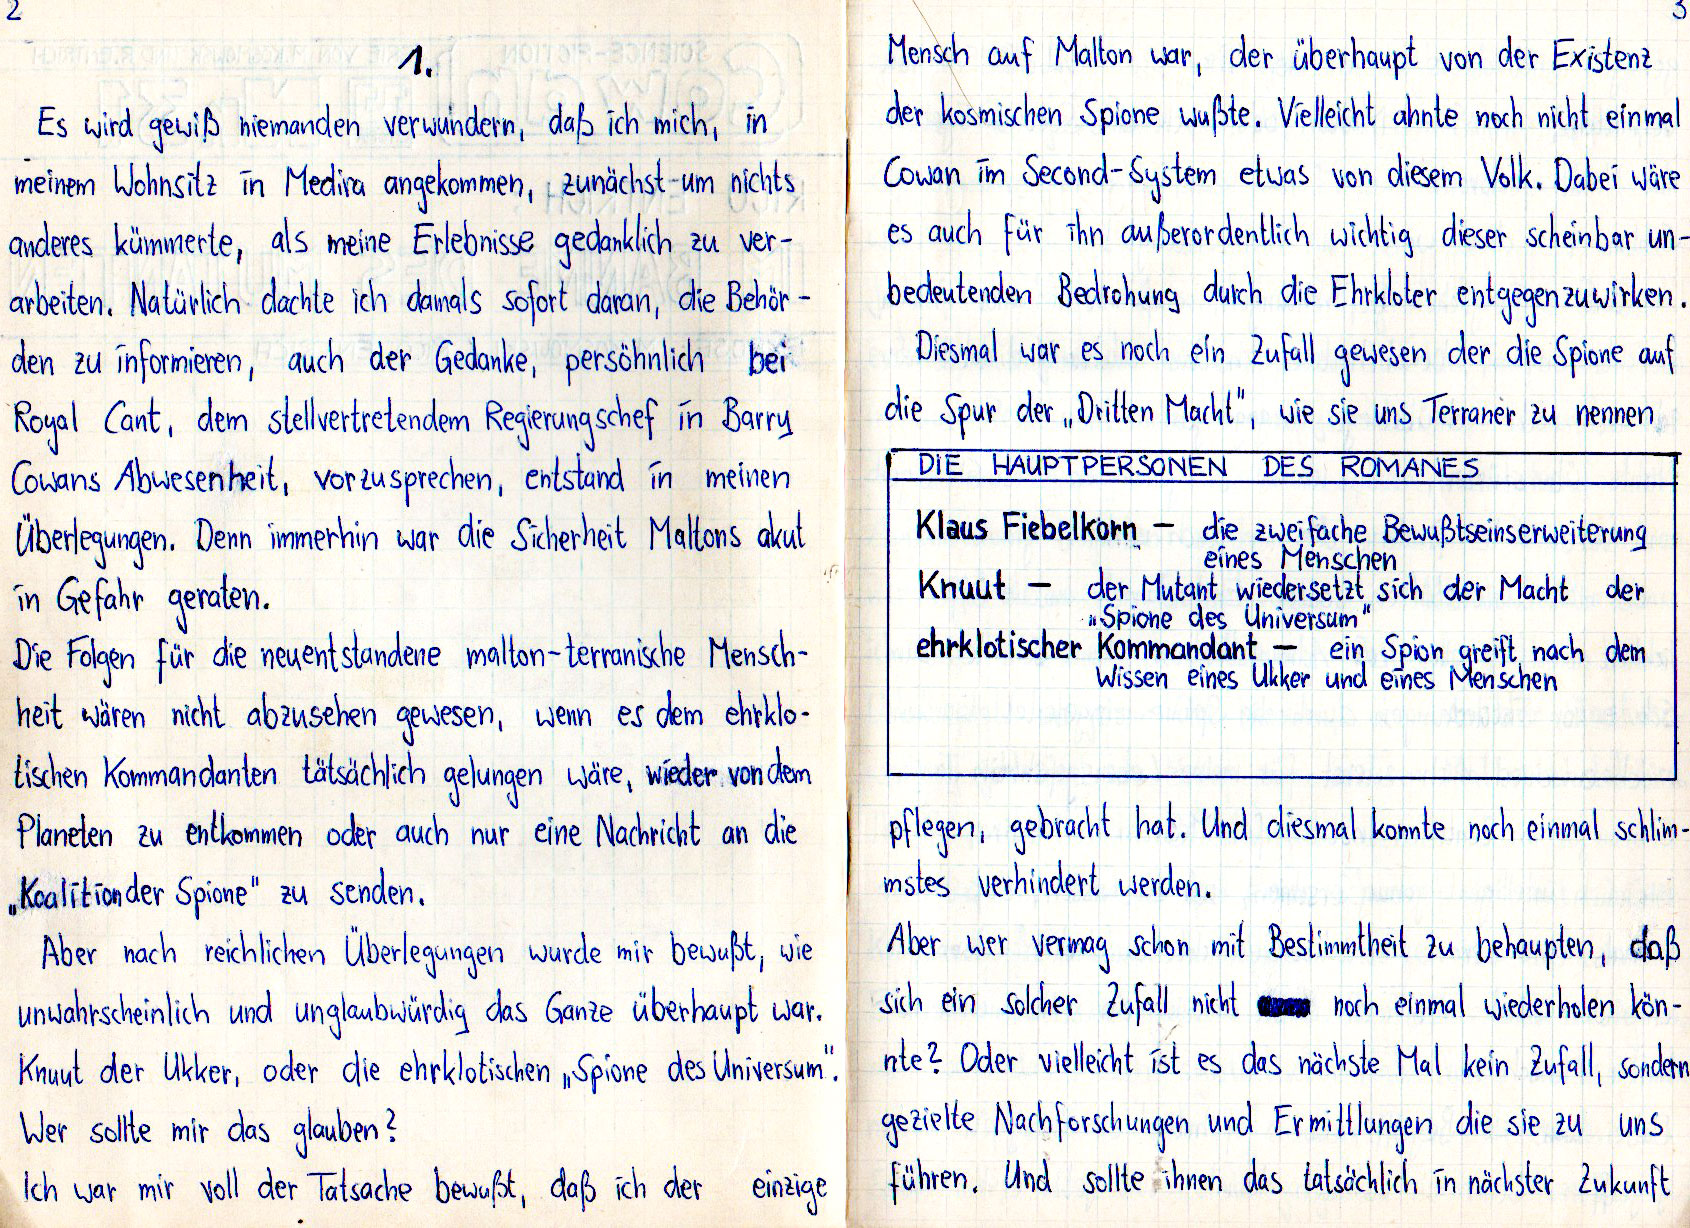 2
1.
Es wird gewiß niemanden verwundern, daß ich mich, in
meinem Wohnsitz in Medira angekommen, zunächst um nichts
anderes kümmerte, als meine Erlebnisse gedanklich zu ver-
arbeiten. Natürlich dachte ich damals sofort daran, die Behör-
den zu informieren, auch der Gedanke, persöhnlich bei
Royal Cant, dem stellvertretendem Regierungschef in Barry
Cowans Abwesenheit, vorzusprechen, entstand in meinen
Überlegungen. Denn immerhin war die Sicherheit Maltons akut
in Gefahr geraten.
Die Folgen für die neuentstandene malton-terranische Mensch-
heit wären nicht abzusehen gewesen, wenn es dem ehrklo-
tischen Kommandanten tätsächlich gelungen wäre, wieder von dem
Planeten zu entkommen oder auch nur eine Nachricht an die
„Koalition der Spione" zu senden.
Aber nach reichlichen Überlegungen wurde mir bewußt, wie
unwahrscheinlich und unglaubwürdig das Ganze überhaupt war.
Knuut der Ukker, oder die ehrklotischen „Spione des Universum".
Wer sollte mir das glauben?
Ich war mir voll der Tatsache bewußt, daß ich der einzige
3
Mensch auf Malton war, der überhaupt von der Existenz
der kosmischen Spione wußte. Vielleicht ahnte noch nicht einmal
Cowan im Second-System etwas von diesem Volk. Dabei wäre
es auch für ihn außerordentlich wichtig dieser scheinbar un-
bedeutenden Bedrohung durch die Ehrkloter entgegenzuwirken.
Diesmal war es noch ein Zufall gewesen der die Spione auf
die Spur der „Dritten Macht", wie sie uns Terraner zu nennen
DIE HAUPTPERSONEN DES ROMANES
Klaus Fiebelkorn — die zweifache Bewußtseinserweiterung
eines Menschen
Knuut — der Mutant wiedersetzt sich der Macht der
„Spione des Universum"
ehrklotischer Kommandant — ein Spion greift nach dem
Wissen eines Ukker und eines Menschen
pflegen, gebracht hat. Und diesmal konnte noch einmal schlim-
mstes verhindert werden.
Aber wer vermag schon mit Bestimmtheit zu behaupten, daß
sich ein solcher Zufall nicht noch einmal wiederholen kön-
nte? Oder vielleicht ist es das nächste Mal kein Zufall, sondern
gezielte Nachforschungen und Ermittlungen die sie zu uns
führen. Und sollte ihnen das tatsächlich in nächster Zukunft